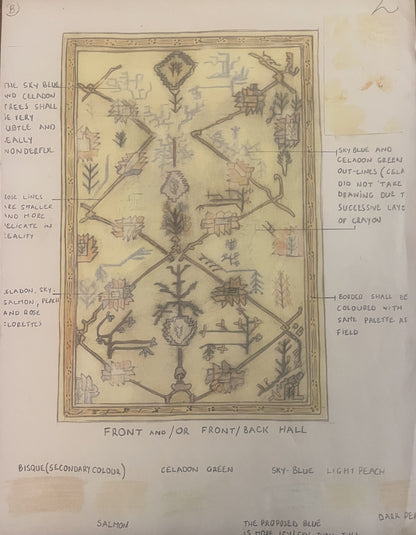 B
THE SKY BLUE
AND CELADON
TREES SHALL
BE VERY
SUBTLE AND
REALLY
WONDERFUL
SKY BLUE AND
CELADON GREEN
OUT-LINES (CELA
DID NOT TAKE
DRAWING DUE T
SUCCESSIVE LAYE
OF CRAYON
ROSE LINES
ARE SMALLER
AND MORE
DELICATE IN
REALITY
CELADON, SKY-
SALMON, PEACH
AND ROSE
BORDER SHALL BE
COLOURED WITH
SAME PALETTE AS
FIELD
FRONT AND/OR FRONT/BACK HALL
BISQUE (SECONDARY COLOUR)
CELADON GREEN
SKY-BLUE
LIGHT PEACH
SALMON
THE PROPOSED BLUE
DARK PEA